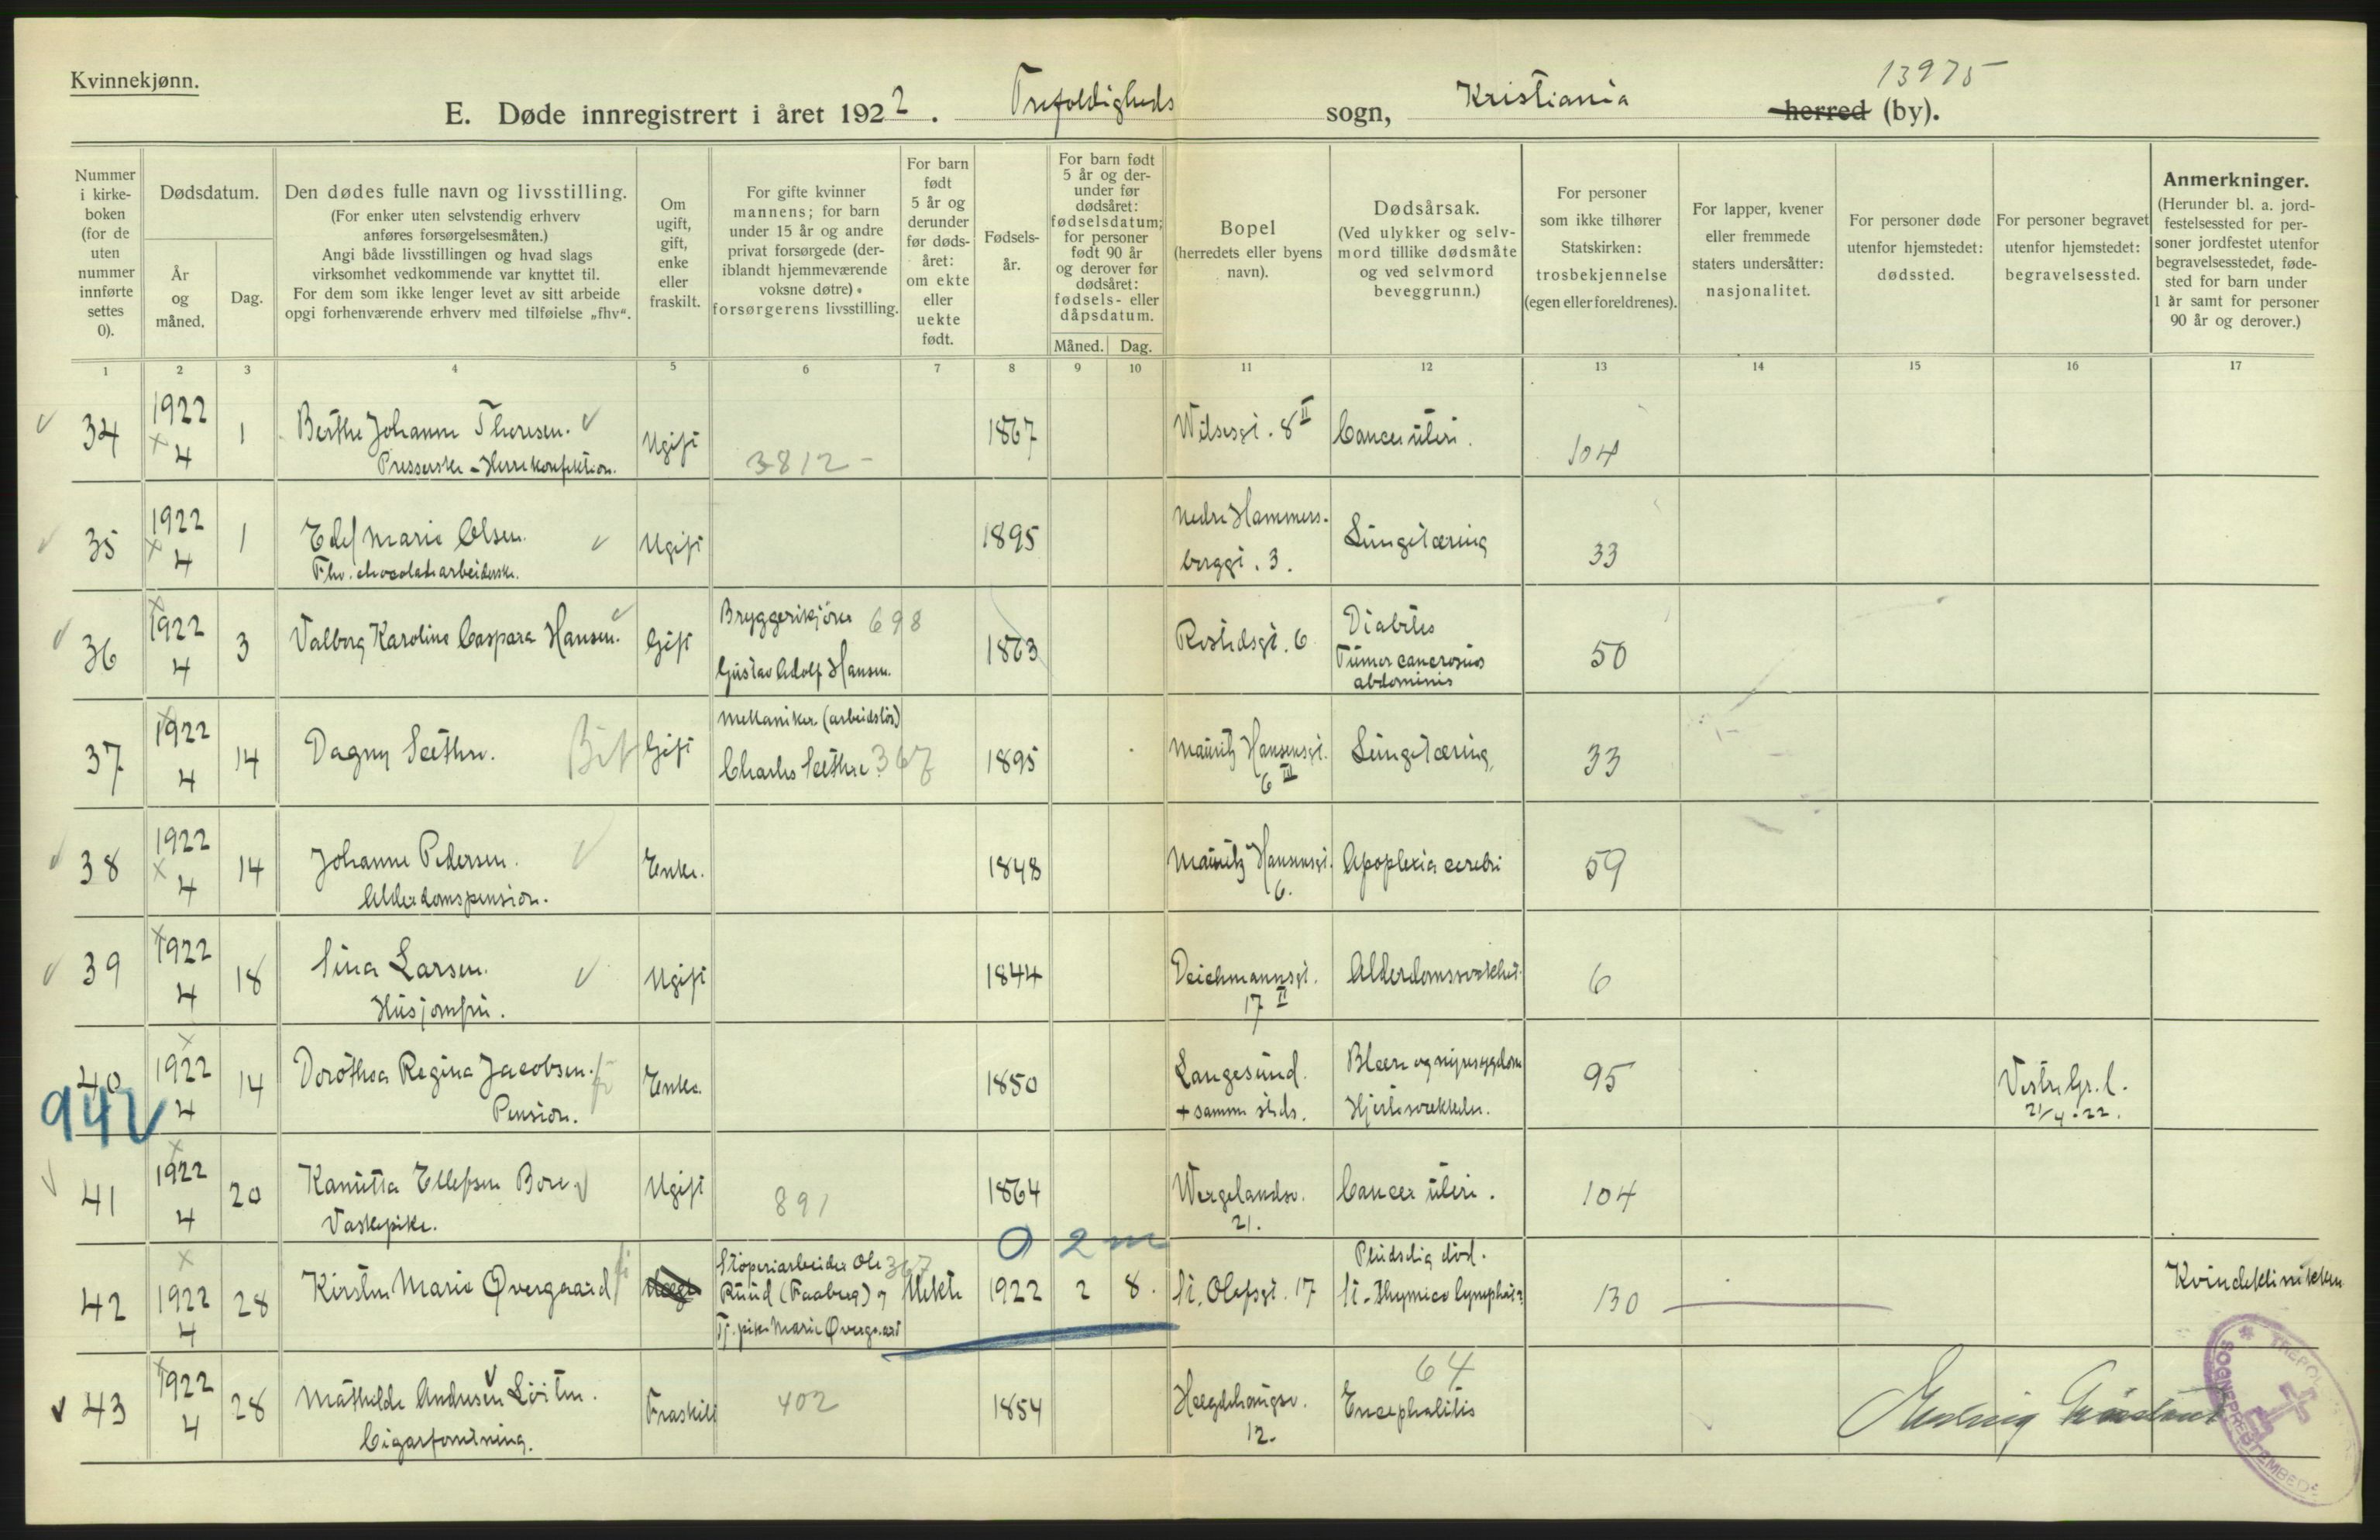 Kvinnekjønn.
13975
E. Døde innregistrert i året 1922. Trefoldigheds sogn, Kristiania herred (by).
Nummer i kirkeboken (for de uten nummer innførte settes 0).
Dødsdatum.
År og måned.
Dag.
Den dødes fulle navn og livsstilling.
(For enker uten selvstendig erhverv anføres forsørgelsesmåten.)
Angi både livsstillingen og hvad slags virksomhet vedkommende var knyttet til.
For dem som ikke lenger levet av sitt arbeide opgi forhenværende erhverv med tilføielse „fhv“.
Om ugift, gift, enke eller fraskilt.
For gifte kvinner mannens; for barn under 15 år og andre privat forsørgede (deriblandt hjemmeværende voksne døtre) forsørgerens livsstilling.
For barn født 5 år og derunder før dødsåret: om ekte eller uekte født.
Fødselsår.
For barn født 5 år og derunder før dødsåret: fødselsdatum; for personer født 90 år og derover før dødsåret: fødsels- eller dåpsdatum.
Måned. Dag.
Bopel
(herredets eller byens navn).
Dødsårsak.
(Ved ulykker og selvmord tillike dødsmåte og ved selvmord beveggrunn.)
For personer som ikke tilhører Statskirken: trosbekjennelse (egen eller foreldrenes).
For lapper, kvener eller fremmede staters undersåtter: nasjonalitet.
For personer døde utenfor hjemstedet: dødssted.
For personer begravet utenfor hjemstedet: begravelsessted.
Anmerkninger.
(Herunder bl. a. jordfestelsessted for personer jordfestet utenfor begravelsesstedet, fødested for barn under 1 år samt for personer 90 år og derover.)
1 2 3 4 5 6 7 8 9 10 11 12 13 14 15 16 17
34 1922 4 1 Berthe Johanne Thoresen. Ugift 1867 Wilsesgt. 8 II Cancer uteri. 104
Presserske - Herrekonfektion. 3812 -
35 1922 4 1 Edef Marie Olsen. Ugift 1895 Nedre Hammersborggt. 3. Lungetæring 33
Fhv. chocoladearbeiderske.
36 1922 4 3 Valborg Karoline Caspara Hansen. Gift Bryggerikjører 698 Gustav Adolf Hansen. 1863 Rostedsgt. 6 Diabetes Tumor cancrosus abdominis 50
37 1922 4 14 Dagny Sæthre. Gift Mekaniker (arbeidsløs) Charles Sæthre 367 1895 Mauritz Hansensgt. 6 III Lungetæring 33
38 1922 4 14 Johanne Pedersen. Enke. 1848 Mauritz Hansensgt. 6. Apoplexia cerebri 59
Alderdomspension.
39 1922 4 18 Sina Larsen. Ugift 1844 Deichmannsgt. 17 II Alderdomssvakhet. 6
Husjomfru.
40 1922 4 14 Dorothea Regina Jacobsen. Enke. 1850 Langesund. + samme steds. Blære og nyresygdom Hjertesvækkelse. 95 Vestre Gr. l. 21/4-22.
Pension.
942
41 1922 4 20 Kanutta Ellefsen Bore Ugift 891 1864 Wergelandsv. 21. Cancer uteri. 104
Vaskepike.
0 2 m
42 1922 4 28 Kirsten Marie Øvergaard Støperiarbeider Ole Ruud (Faaberg) og Tj. pike Marie Øvergaard 367 Uekte 1922 2 8. St. Olafsgt. 17 Pludselig død. St. Thymico lymphat? 130 Kvindeklinikken
43 1922 4 28 Mathilde Andersen Løiten. Fraskilt 402 1854 Hægdehaugsv. 12. Encephalitis 64
Cigarforretning.
SOGNEPRESTEMBEDE